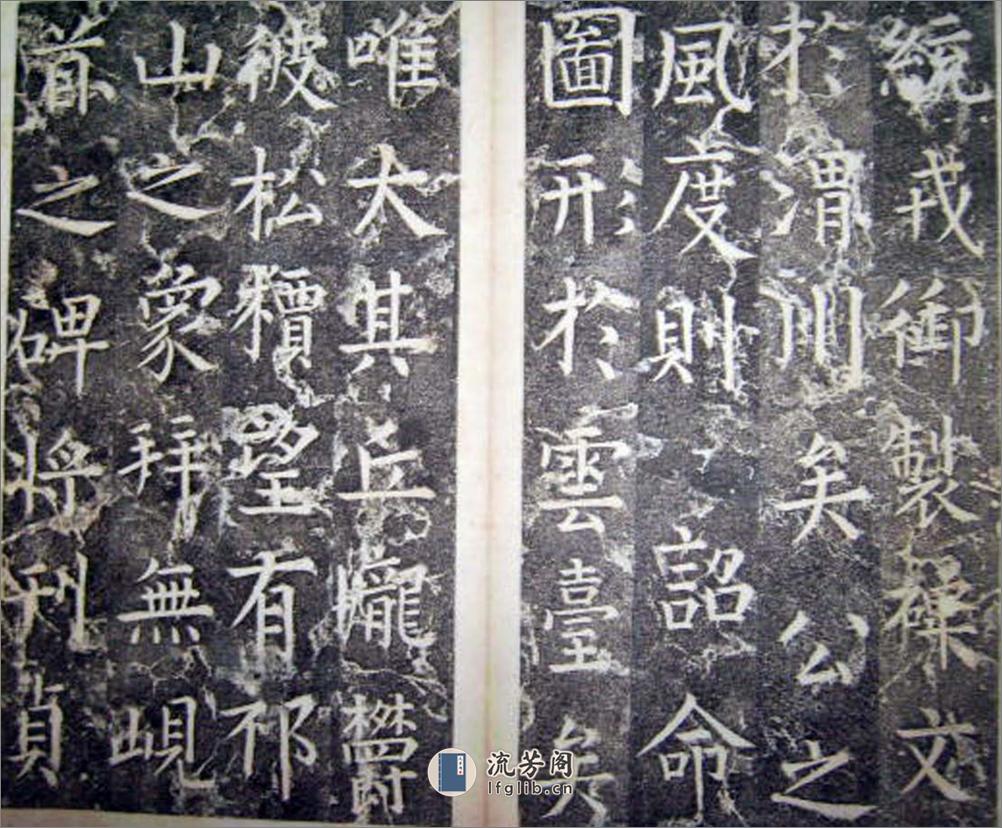 統戎衘製襟文
於渭川矣公之
風度則詔命
圖形於雲臺矣
唯大其丘壠欝
彼松檟望有祁
山之象拜無峴
首之碑將刊貞
流芳阁
lfglib.cn